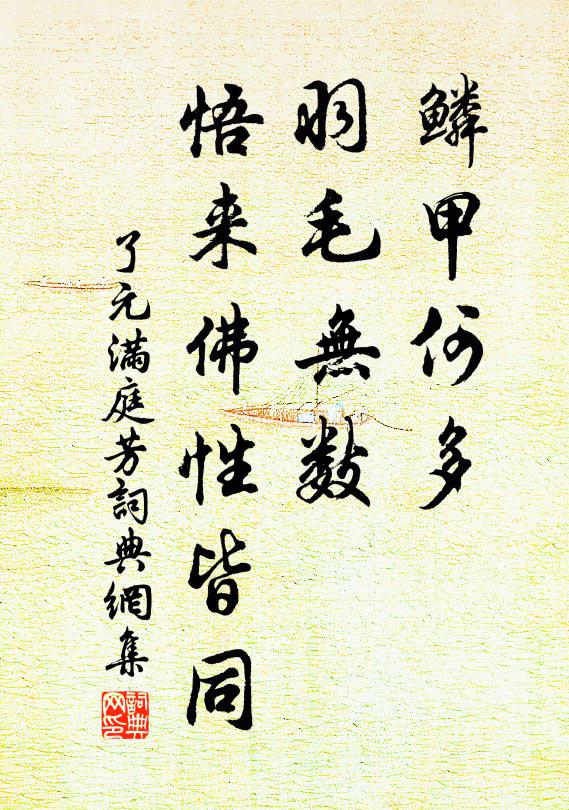 鱗甲何多
羽毛無数
悟来佛性皆同
了元滿庭芳詞典網集
詞典网印